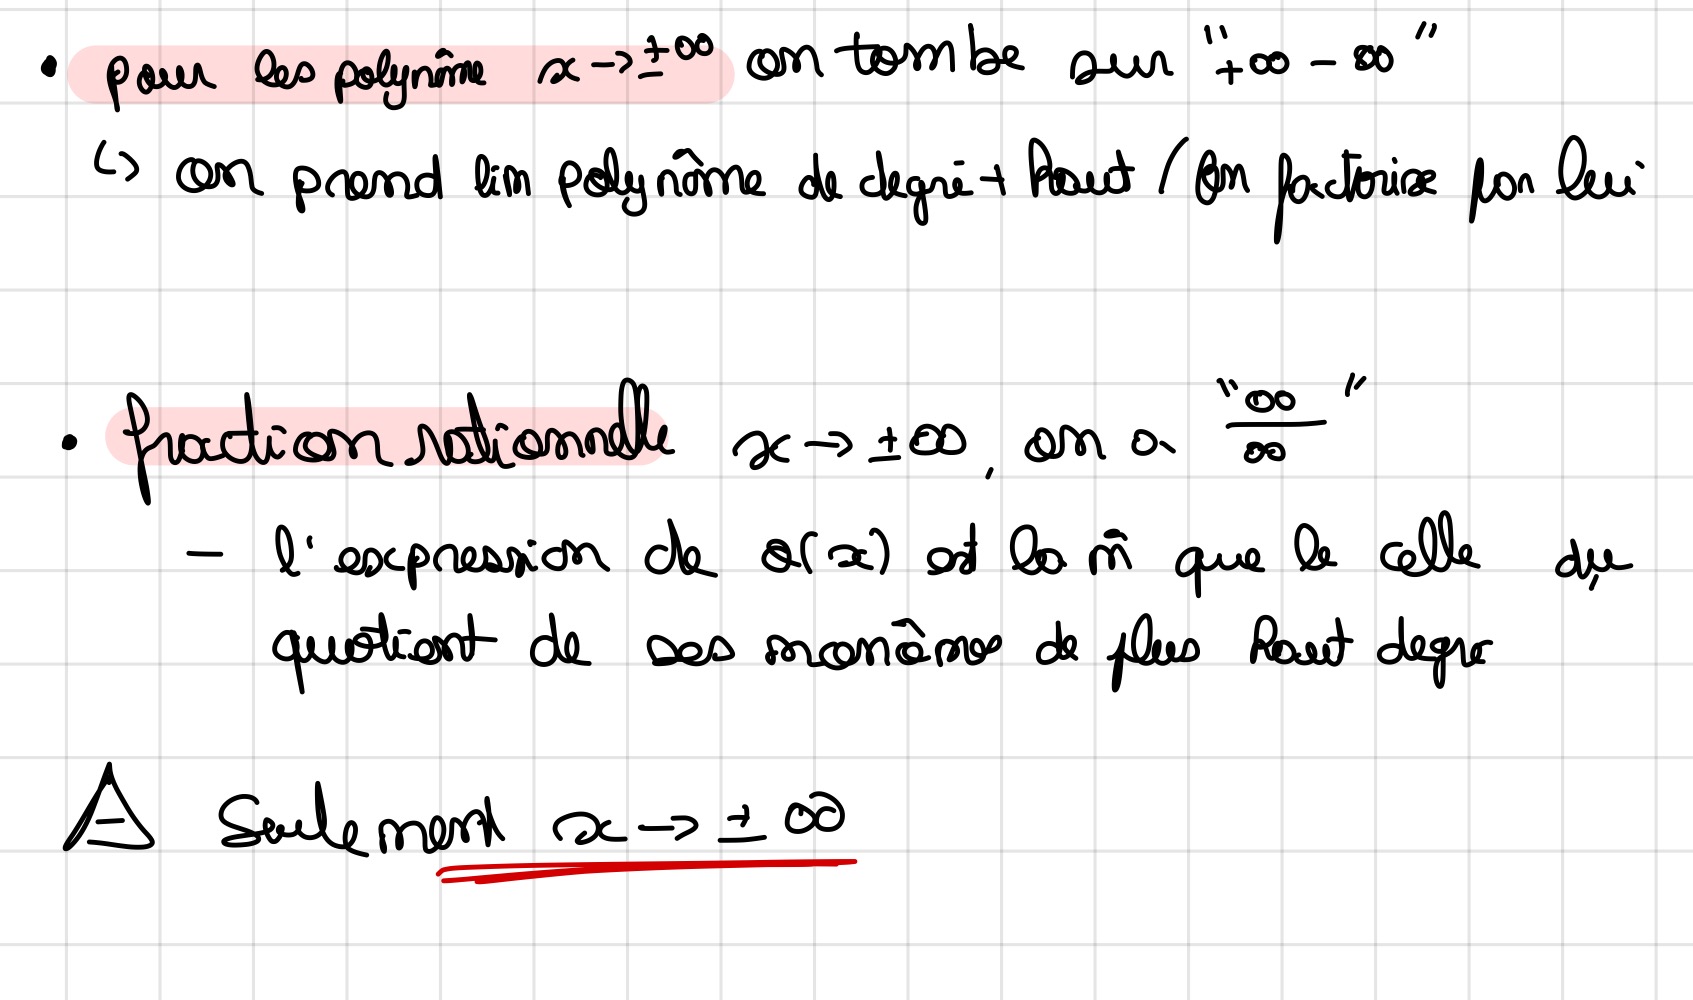 • pour les polynôme x → ±∞ on tombe sur "+∞ - ∞"
↪ on prend lim polynôme de degré + haut / On factorise par lui
• fraction rationnelle x → ±∞, on a "∞/∞"
- l'expression de Q(x) est la m̂ que le celle du
quotient de ses monômes de plus haut degré
⚠ Seulement x → ±∞